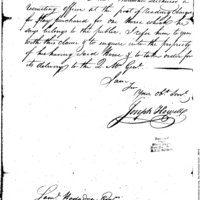 recruiting officer at the post of Reading charges
for Pay purchase for one Horse which he
says belongs to the public. I refer him to you
with this claim & to enquire into the property
of his having said Horse & to take order for
its delivery to the Q M Genl.
I am
Sir
Your Obt Servt.
Joseph Howell
Saml. Hodgdon Esqr.